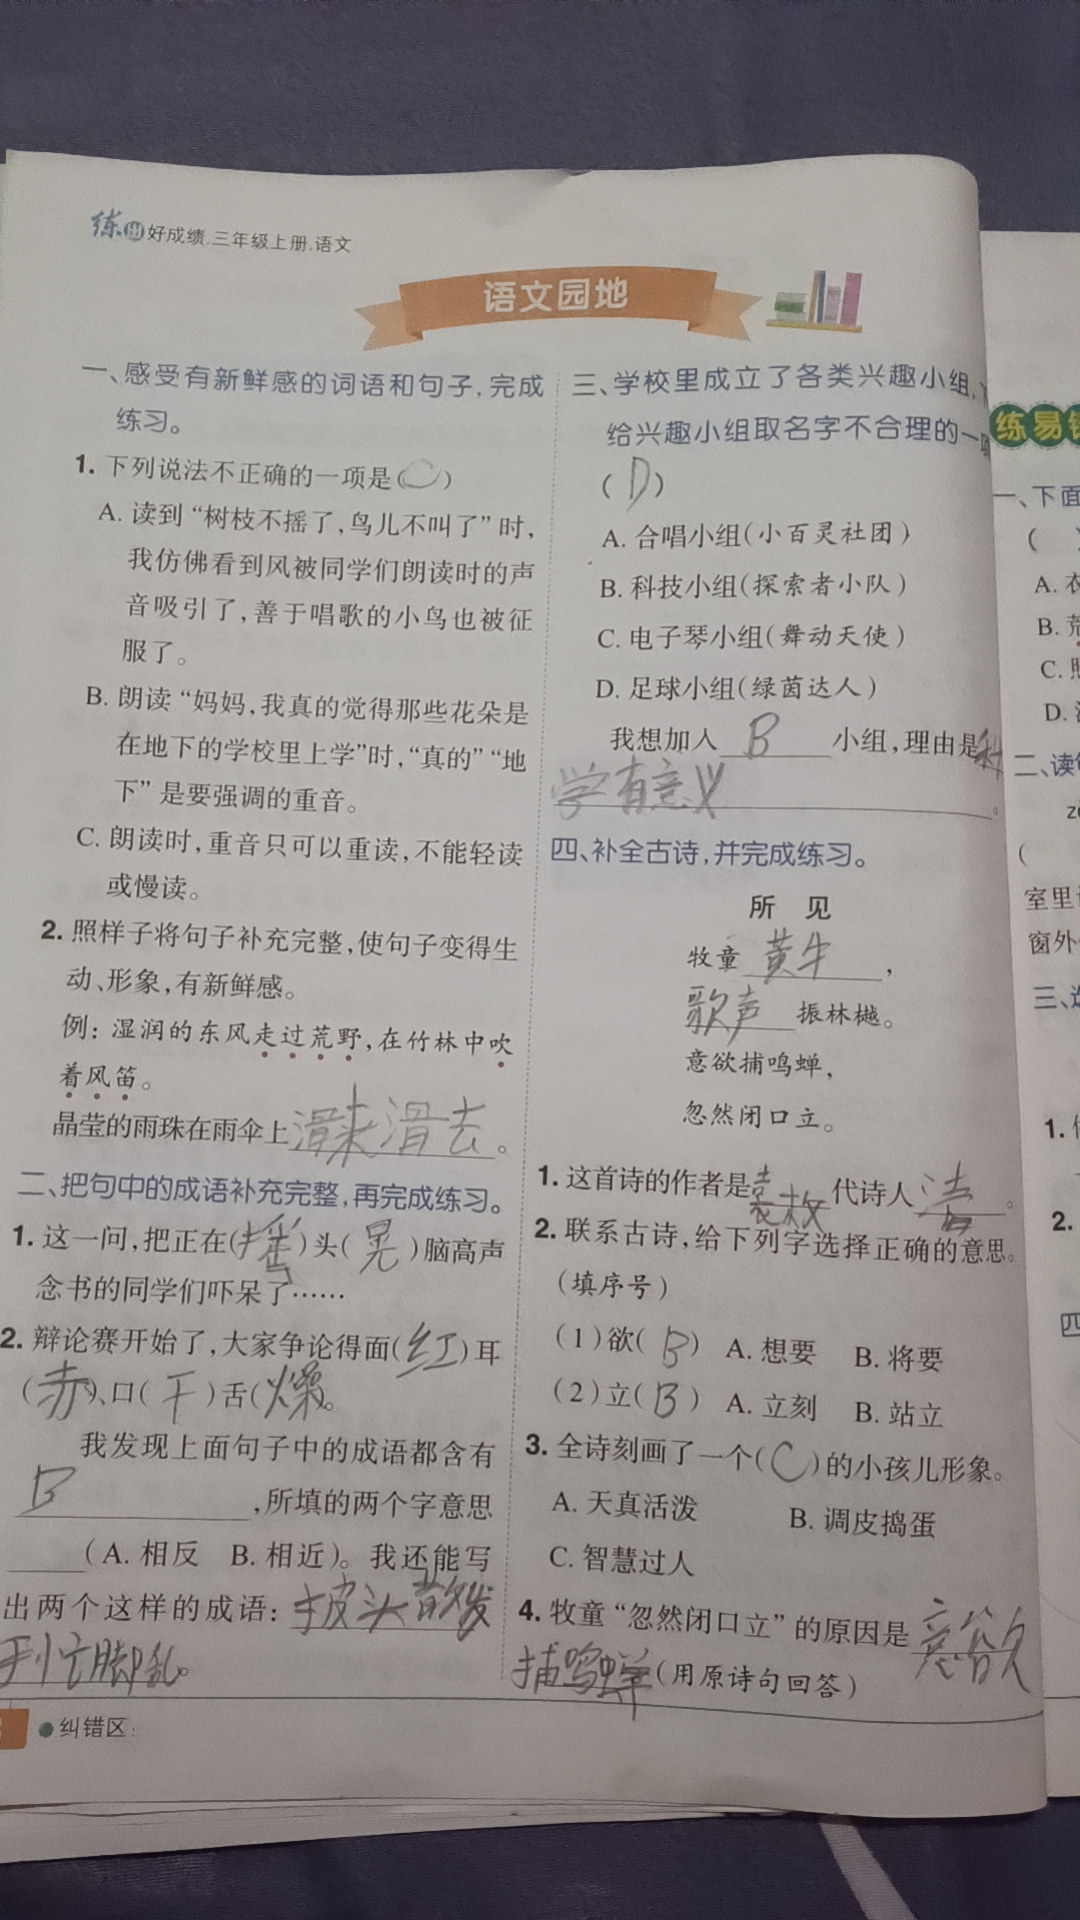 练出好成绩.三年级上册.语文
语文园地
一、感受有新鲜感的词语和句子,完成
练习。
1. 下列说法不正确的一项是(C)
A. 读到“树枝不摇了,鸟儿不叫了”时,
我仿佛看到风被同学们朗读时的声
音吸引了,善于唱歌的小鸟也被征
服了。
B. 朗读“妈妈,我真的觉得那些花朵是
在地下的学校里上学”时,“真的”“地
下”是要强调的重音。
C. 朗读时,重音只可以重读,不能轻读
或慢读。
2. 照样子将句子补充完整,使句子变得生
动、形象,有新鲜感。
例: 湿润的东风走过荒野,在竹林中吹
着风笛。
晶莹的雨珠在雨伞上滑来滑去。
二、把句中的成语补充完整,再完成练习。
1. 这一问,把正在(摇)头(晃)脑高声
念书的同学们吓呆了……
2. 辩论赛开始了,大家争论得面(红)耳
(赤)、口(干)舌(燥)。
我发现上面句子中的成语都含有
B,所填的两个字意思
(A. 相反 B. 相近)。我还能写
出两个这样的成语: 披头散发
手忙脚乱。
纠错区:
三、学校里成立了各类兴趣小组,下
给兴趣小组取名字不合理的一项
(D)
A. 合唱小组(小百灵社团)
B. 科技小组(探索者小队)
C. 电子琴小组(舞动天使)
D. 足球小组(绿茵达人)
我想加入 B 小组,理由是科
学有意义。
四、补全古诗,并完成练习。
所 见
牧童黄牛,
歌声振林樾。
意欲捕鸣蝉,
忽然闭口立。
1. 这首诗的作者是袁枚代诗人清。
2. 联系古诗,给下列字选择正确的意思。
(填序号)
(1)欲(B) A. 想要 B. 将要
(2)立(B) A. 立刻 B. 站立
3. 全诗刻画了一个(C)的小孩儿形象。
A. 天真活泼 B. 调皮捣蛋
C. 智慧过人
4. 牧童“忽然闭口立”的原因是意欲
捕鸣蝉(用原诗句回答)
练易错
一、下面
( )
A. 衣
B. 荒
C.
D.
二、读
(
室里
窗外
三、选
1.
2.
四